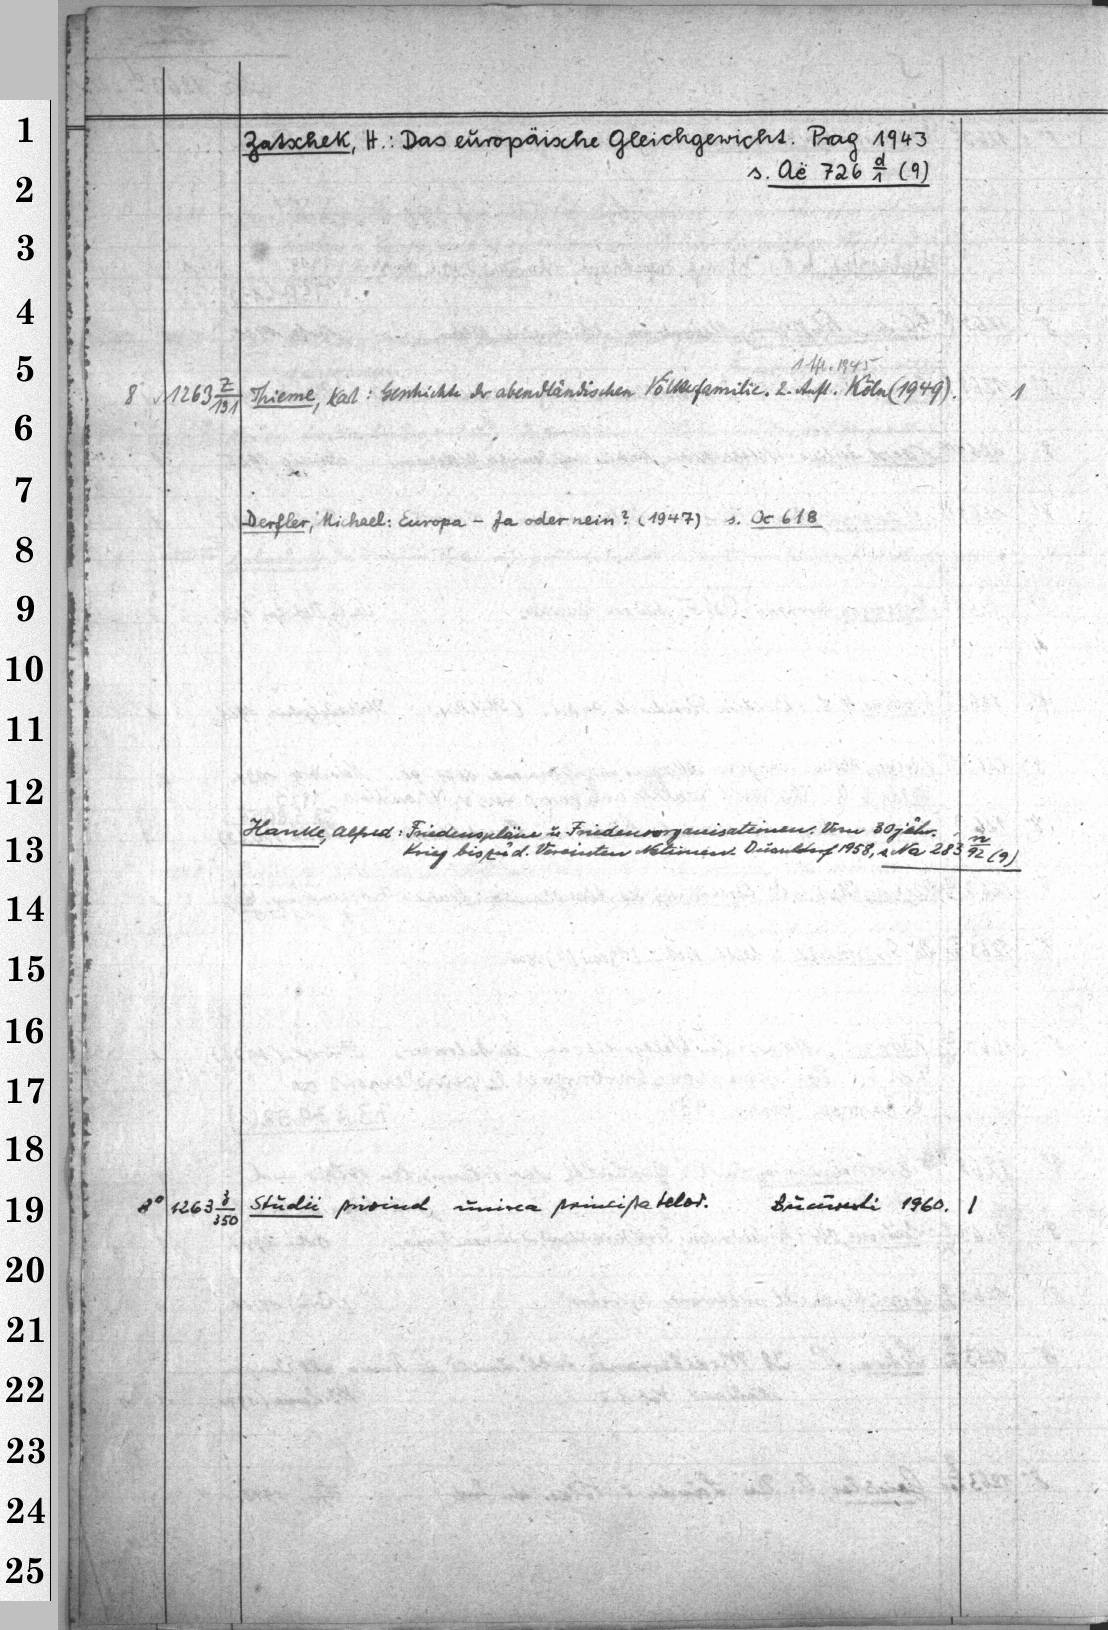 1
2
3
4
5
6
7
8
9
10
11
12
13
14
15
16
17
18
19
20
21
22
23
24
25
Zatschek, H.: Das europäische Gleichgewicht. Prag 1943
s. Aë 726 d/1 (9)
1945
8° 1263 Z/191 Thieme, Karl: Geschichte der abendländischen Völkerfamilie. 2. Aufl. Köln (1949). 1
Derfler, Michael: Europa – Ja oder nein? (1947) s. Oc 618
Hanke, Alfred: Friedenspläne u. Friedensorganisationen. Vom 30jähr.
Krieg bis zu d. Vereinten Nationen. Düsseldorf 1958, s. Na 283 n/92 (9)
8° 1263 3/350 Studii privind unirea principatelor. Bucuresti 1960. 1